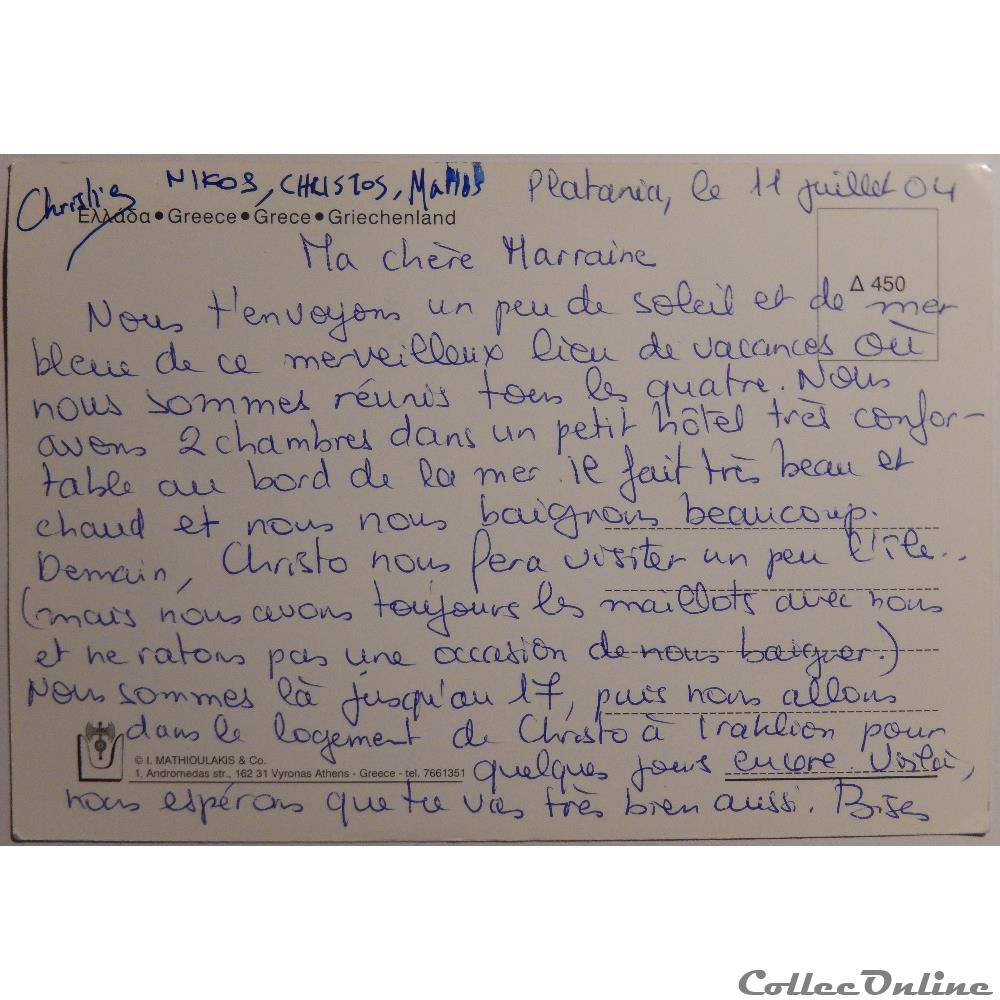 NIKOS, CHRISTOS,
Platania, le 11 juillet 04
Ελλάδα • Greece • Grece • Griechenland
Δ 450
Ma chère Marraine
Nous t'envoyons un peu de soleil et de mer
bleue de ce merveilleux lieu de vacances où
nous sommes réunis tous les quatre. Nous
avons 2 chambres dans un petit hôtel très confor-
table au bord de la mer. il fait très beau et
chaud et nous nous baignons beaucoup.
Demain, Christo nous fera visiter un peu l'île..
(mais nous avons toujours les maillots avec nous
et ne ratons pas une occasion de nous baigner.)
Nous sommes là jusqu'au 17, puis nous allons
dans le logement de Christo à Iraklion pour
quelques jours encore. Voilà,
nous espérons que tu vas très bien aussi. Bises
© I. MATHIOULAKIS & Co.
1, Andromedas str., 162 31 Vyronas Athens - Greece - tel. 7661351
CollecOnline